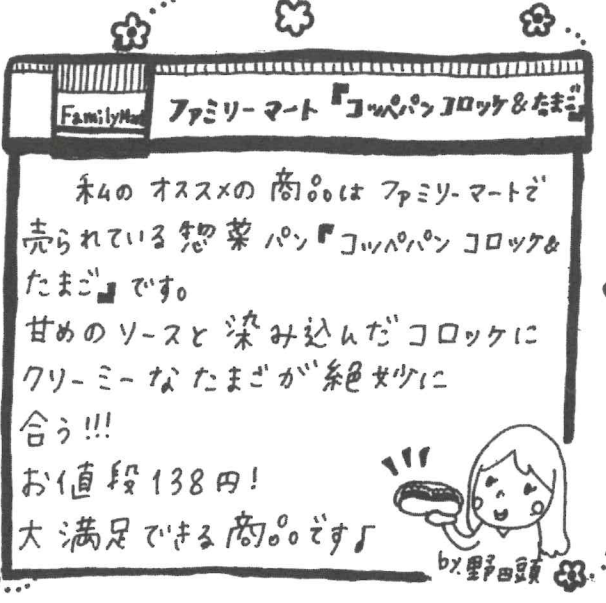 FamilyMart
ファミリーマート『コッペパンコロッケ&たまご』
私のオススメの商品はファミリーマートで
売られている惣菜パン『コッペパンコロッケ&
たまご』です。
甘めのソースと染み込んだコロッケに
クリーミーなたまごが絶妙に
合う!!!
お値段138円!
大満足できる商品です♪
by.野田頭